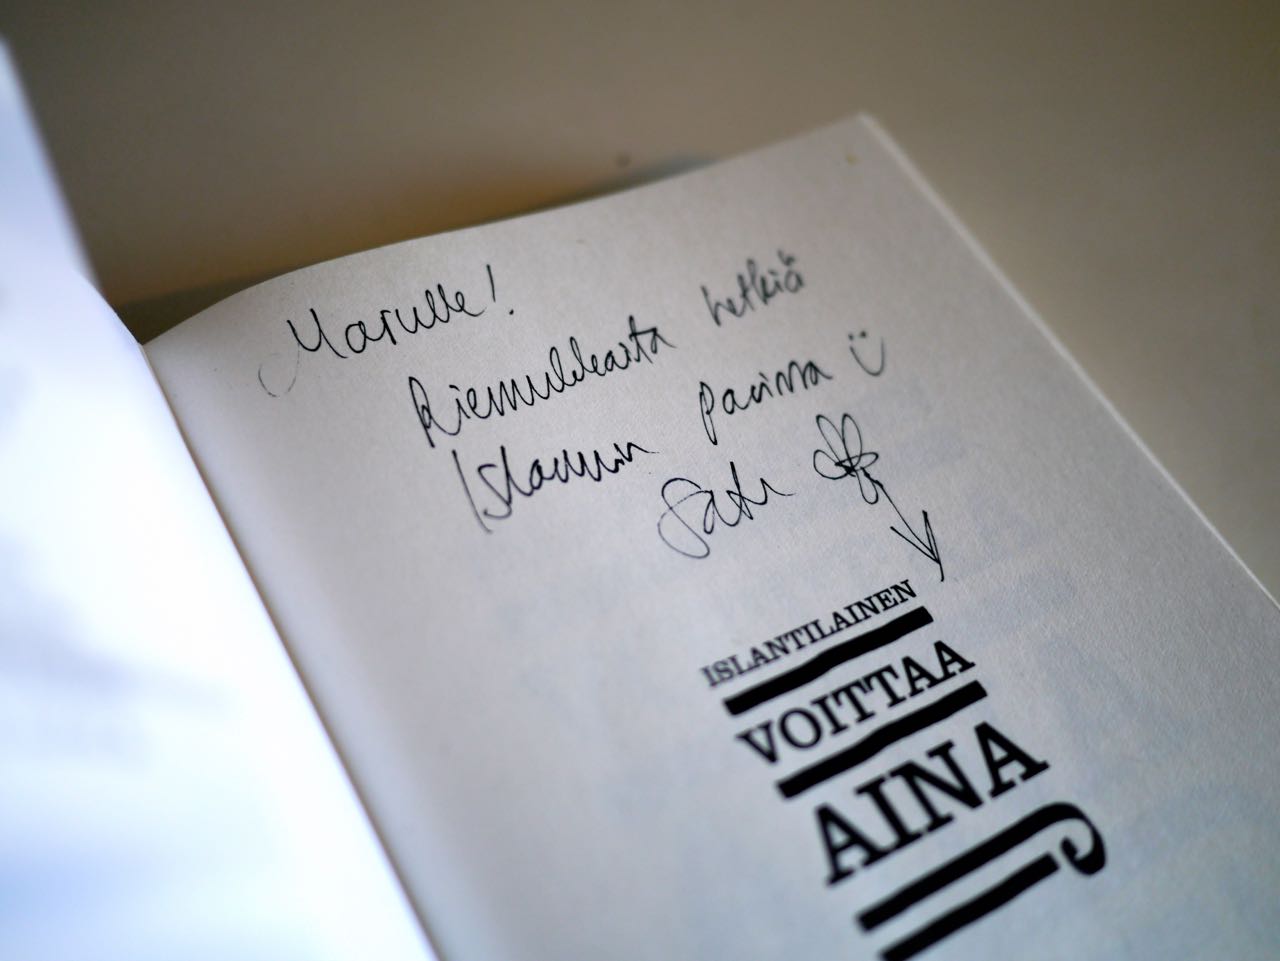 Marulle!
Riemukkaita hetkiä
Islannin parissa
Satu
ISLANTILAINEN
VOITTAA
AINA